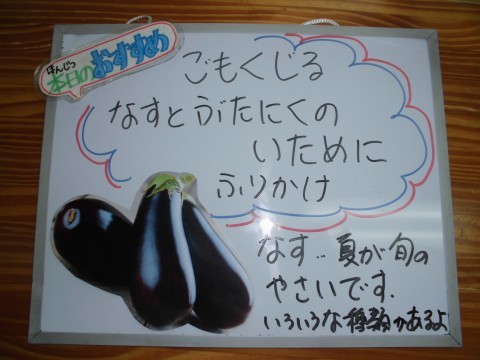 ほんじつ
本日のおすすめ
ごもくじる
なすとぶたにくの
いために
ふりかけ
なす‥夏が旬の
やさいです.
いろいろな種類があるよ